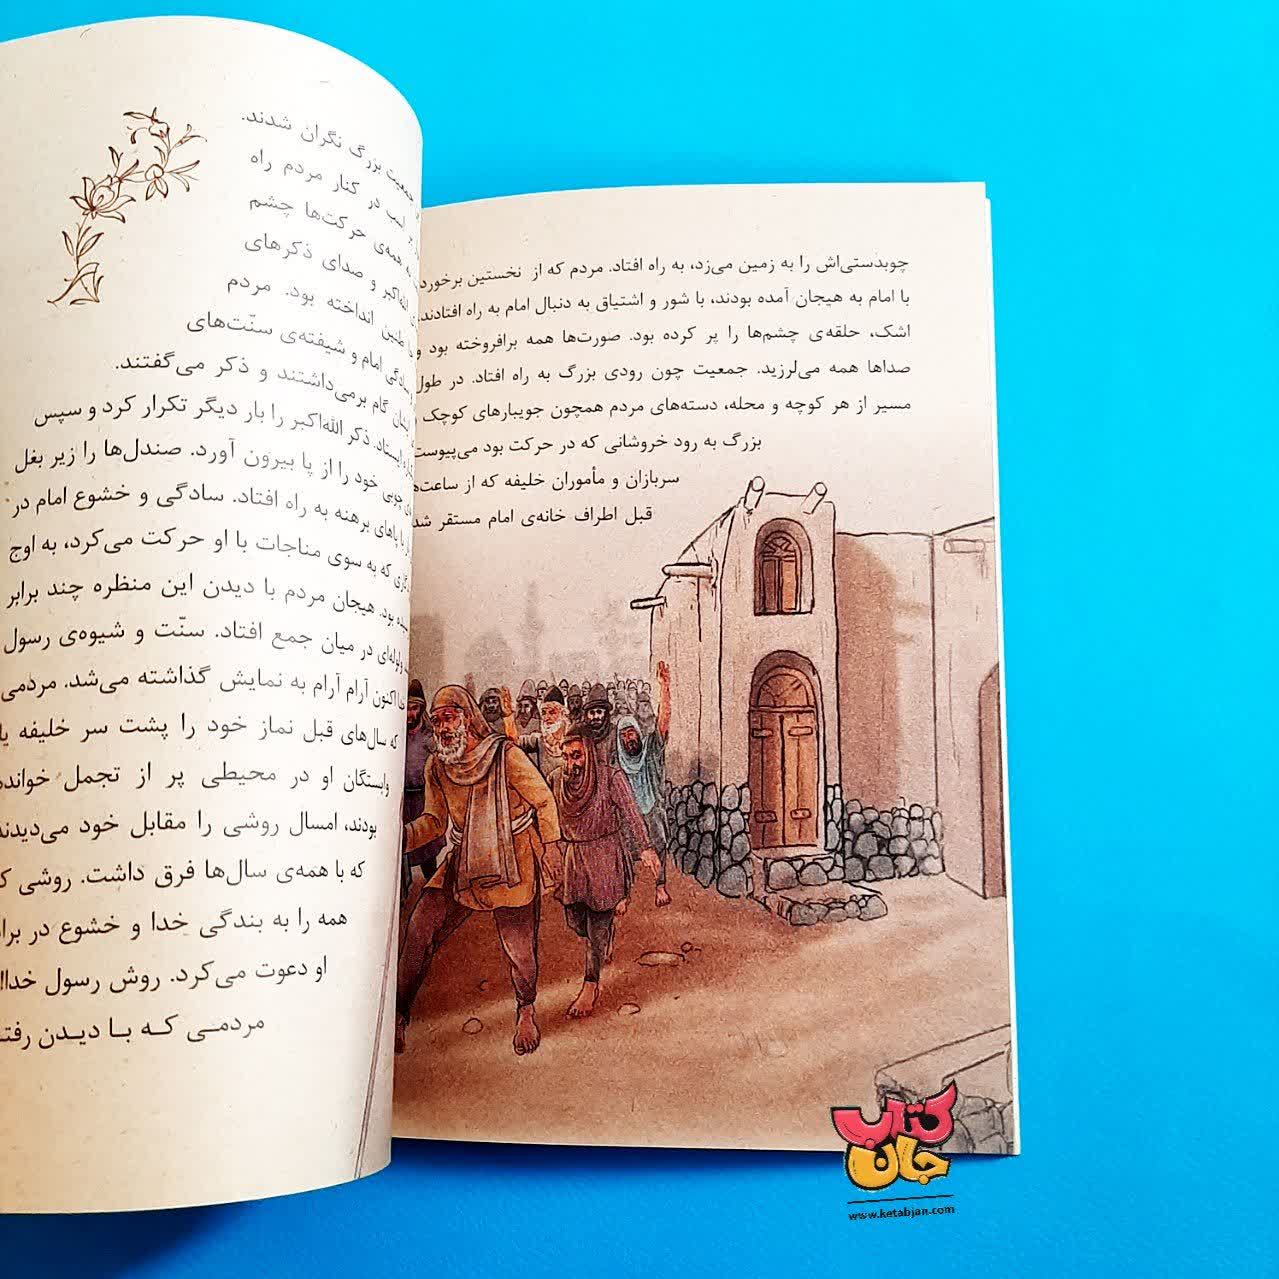 چوبدستی‌اش را به زمین می‌زد، به راه افتاد. مردم که از نخستین برخورد
با امام به هیجان آمده بودند، با شور و اشتیاق به دنبال امام به راه افتادند.
اشک، حلقه‌ی چشم‌ها را پر کرده بود. صورت‌ها همه برافروخته بود و
صداها همه می‌لرزید. جمعیت چون رودی بزرگ به راه افتاد. در طول
مسیر از هر کوچه و محله، دسته‌های مردم همچون جویبارهای کوچک و
بزرگ به رود خروشانی که در حرکت بود می‌پیوست
سربازان و مأموران خلیفه که از ساعت‌ها
قبل اطراف خانه‌ی امام مستقر شد
جمعیت بزرگ نگران شدند.
در کنار مردم راه
همه‌ی حرکت‌ها چشم
الله‌اکبر و صدای ذکرهای
طنین انداخته بود. مردم
سادگی امام و شیفته‌ی سنّت‌های
گام برمی‌داشتند و ذکر می‌گفتند.
ایستاد. ذکر الله‌اکبر را بار دیگر تکرار کرد و سپس
چوبی خود را از پا بیرون آورد. صندل‌ها را زیر بغل
با پاهای برهنه به راه افتاد. سادگی و خشوع امام در
که به سوی مناجات با او حرکت می‌کرد، به اوج
بود. هیجان مردم با دیدن این منظره چند برابر
ولوله‌ای در میان جمع افتاد. سنّت و شیوه‌ی رسول
اکنون آرام آرام به نمایش گذاشته می‌شد. مردمی
که سال‌های قبل نماز خود را پشت سر خلیفه یا
وابستگان او در محیطی پر از تجمل خوانده
بودند، امسال روشی را مقابل خود می‌دیدند
که با همه‌ی سال‌ها فرق داشت. روشی که
همه را به بندگی خدا و خشوع در برابر
او دعوت می‌کرد. روش رسول خدا!
مردمی که با دیدن رفتـ
کتاب
جان
www.ketabjan.com